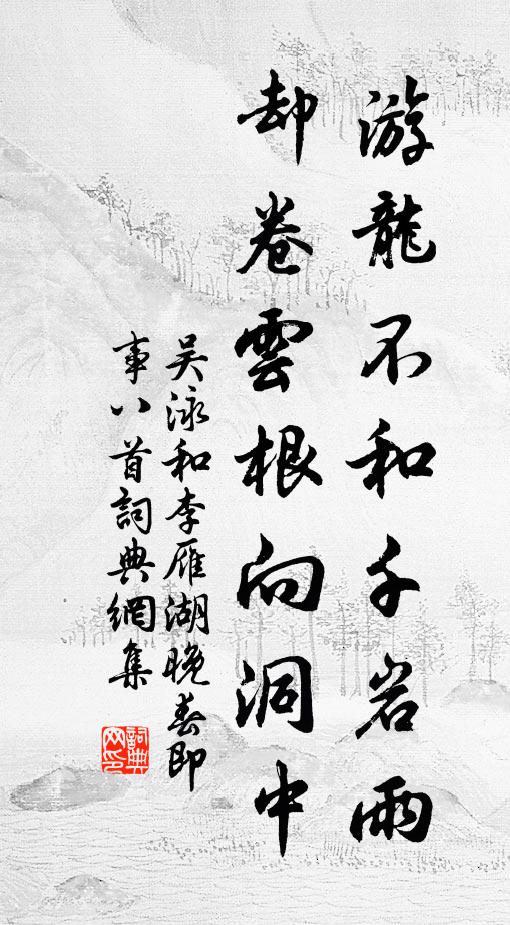 游龍不和千岩雨
却卷雲根向洞中
吴泳和李雁湖晚春即
事八首詞典網集
詞典
网